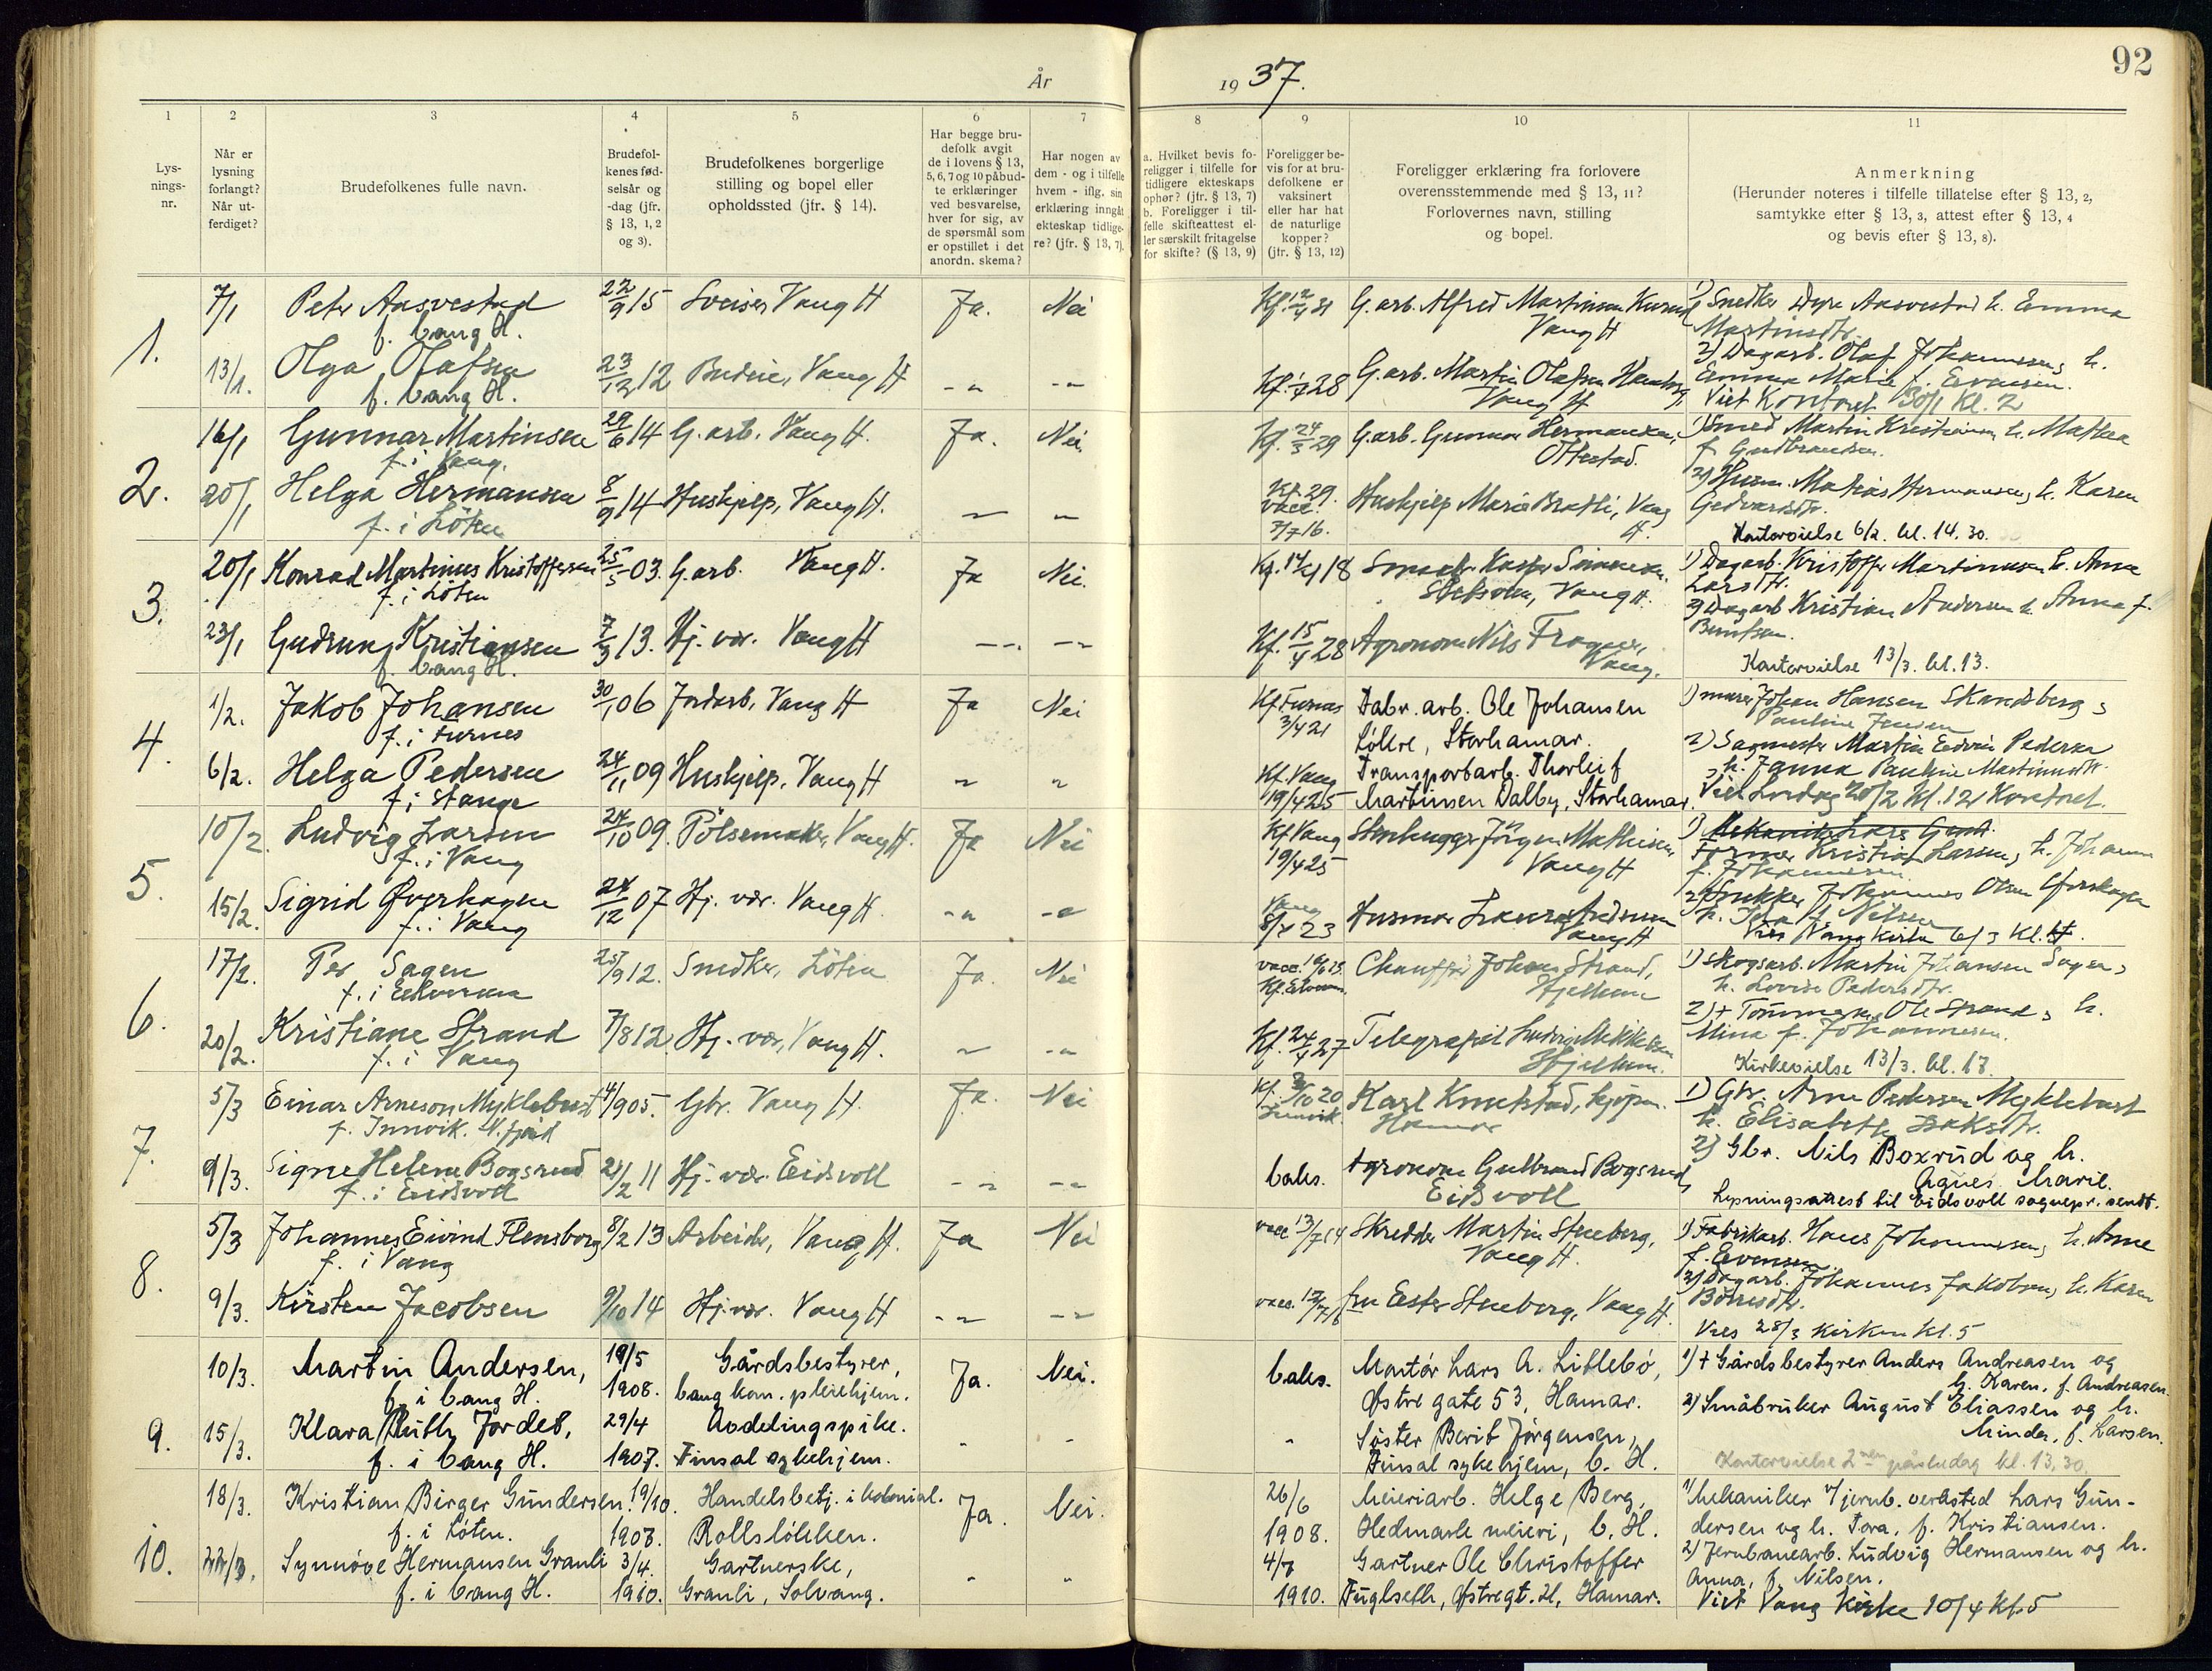 92
År
19 37.
1
Lys-
nings-
nr.
2
Når er
lysning
forlangt?
Når ut-
ferdiget?
3
Brudefolkenes fulle navn.
4
Brudefol-
kenes fød-
selsår og
-dag (jfr.
§ 13, 1, 2
og 3).
5
Brudefolkenes borgerlige
stilling og bopel eller
opholdssted (jfr. § 14).
6
Har begge bru-
defolk avgit
de i lovens § 13,
5, 6, 7 og 10 påbud-
te erklæringer
ved besvarelse,
hver for sig, av
de spørsmål som
er opstillet i det
anordn. skema?
7
Har nogen av
dem - og i tilfelle
hvem - iflg. sin
erklæring inngåt
ekteskap tidlige-
re? (jfr. § 13, 7).
8
a. Hvilket bevis fo-
religger i tilfelle for
tidligere ekteskaps
ophør? (jfr. § 13, 7)
b. Foreligger i til-
felle skifteattest el-
ler særskilt fritagelse
for skifte? (§ 13, 9)
9
Foreligger be-
vis for at bru-
defolkene er
vaksinert
eller har hat
de naturlige
kopper?
(jfr. § 13, 12)
10
Foreligger erklæring fra forlovere
overensstemmende med § 13, 11?
Forlovernes navn, stilling
og bopel.
11
Anmerkning
(Herunder noteres i tilfelle tillatelse efter § 13, 2,
samtykke efter § 13, 3, attest efter § 13, 4
og bevis efter § 13, 8).
1.
7/1 Peter Aasvestad 22/9 15 Sveiser Vang H Ja. Nei G. arb. Alfred Martinsen Vang H 1) Snedker Aasvestad h. Emma
f. Vang H. Martinsdtr.
13/1. Olga Olafsen 23/12 12 Budeie, Vang H -"- -"- Kf. 28 G. arb. Martin Olafsen Vang H 2) Dagarb. Olaf Johannessen, h.
f. Vang H. Emma Marie f. Evensen.
Viet Kontoret 30/1 Kl. 2
2.
16/1 Gunnar Martinsen 29/6 14 G. arb. Vang H. Ja. Nei. Kf. 24/3 29 G. arb. Gunnar Hermansen, Ottestad. 1) Smed Martin Kristiansen h. Mathea
f. i Vang. f. Gudbrandsen.
20/1 Helga Hermansen 8/9 14 Huskjelp, Vang H. Kf. 29. vacc. 7/7 16. Huskjelp Marie Bratli, Vang H. 2) Husm. Mathias Hermansen, h. Karen
f. i Löten
Kontorvielse 6/2. kl. 14.30.
3.
20/1 Konrad Martinus Kristoffersen 25/5 03. G. arb. Vang H. Ja Nei. Kf. 14/4 18 Vang H. 1) Dagarb. Kristoffer Martinussen h. Anne
f. i Löten Larsdtr.
23/1 Gudrun Kristiansen 7/3 13. Hj. vær. Vang H Kf. 15/4 28 Agronom Nils Frogner, Vang. 2) Dagarb Kristian Andersen h. Anna f.
f. Vang H. Berntsen.
Kontorvielse 13/3. kl. 13.
4.
1/2. Jakob Johansen 30/1 06 Jordarb, Vang H Ja Nei Kf. Furnes 3/4 21 Fabr. arb. Ole Johansen 1) murer Johan Hansen Skandsberg,
f. i Furnes Løkke, Storhamar. Pauline Jensen
6/2. Helga Pedersen 24/11 09 Huskjelp, Vang H " " Kf. Vang 19/4 25 Transportarb. Thorleif 2) Sagmester Martin Edvin Pedersen
f. i Stange Martinsen Dalby, Storhamar. h. Janna Pauline Martinusdtr.
Viet Lørdag 20/2 Kl. 12 Kontoret.
5.
10/2. Ludvig Larsen 24/10 09. Pölsemaker, Vang H. Ja Nei Kf Vang 19/4 25 Stenhugger Jörgen Mathisen, Vang H 1) Mekaniker Lars Gund.
f. i Vang Kristian Larsen, h. Johanne
f. Johannessen
15/2. Sigrid Øverhagen 24/12 07 Hj. vær. Vang H. -"- -"- Vang 23 Husmor Vang H 2) Johannes Olsen
f. i Vang h. f. Nilsen
Vies Vang kirke 6/3 Kl.
6.
17/2. Per Sagen 25/9 12. Snedker, Löten Ja. Nei Chauffør Johan Strand, Hjellum 1) Skogsarb. Martin Johansen Sagen,
f. i Elverum h. Lovise Pedersdtr.
20/2. Kristiane Strand 7/8 12. Hj. vær, Vang H. Kf. 24/4 27 Telegrafist Ludvig Mikkelsen Hjellum. 2) + Tömmerm. Ole Strand, h.
f. i Vang Mina f. Johannesen.
Kirkevielse 13/3. kl. 17.
7.
5/3 Einar Arneson Myklebust 14/9 05. Gbr. Vang H. Ja. Nei Karl Knutstad, kjöpm. Hamar 1) Gbr. Arne Pedersen Myklebust
f. Innvik. N. fjord h. Elisabeth Isaksdtr.
9/3. Signe Helene Bogsrud 21/2 11 Hj. vær. Eidsvoll -"- -"- Vaks. Agronom Gulbrand Bogsrud, Eidsvoll 2) Gbr. Nils Boxrud og h.
f. i Eidsvoll Agnes Marie.
Lysningsattest til Eidsvoll sognepr. sendt.
8.
5/3 Johannes Eivind Flensborg 8/2 13 Arbeider, Vang H. Ja Nei vacc 13/7 14 Skredder Martin Steneberg, Vang H. 1) Fabrikarb. Hans Johannessen, h. Anne
f. i Vang f. Evensen.
9/3. Kirsten Jacobsen 9/10 14 Hj. vær. Vang H -"- -"- vacc. fru Ester Steneberg, Vang H. 2) Dagarb. Johannes Jakobsen, h. Karen
Vies 28/3 kirken kl. 5
9.
10/3. Martin Andersen, 19/5 1908. Gårdsbestyrer, Vang kom. pleiehjem. Ja. Nei. Vaks. Montør Lars A. Lillebö, Østre gate 53, Hamar. 1) + Gårdsbestyrer Anders Andreasen og
f. i Vang H. h. Karen, f. Andreasen.
15/3. Klara Ruth Jordet, 29/4 1907. Avdelingspike. Finsal sykehjem. " " " Söster Berit Jörgensen, Finsal sykehjem, V. H. 2) Småbruker August Eliassen og h.
f. i Vang H. Minda, f. Larsen.
Kontorvielse 2nen påskedag kl. 13,30.
10.
18/3. Kristian Birger Gundersen. 19/10. 1907. Handelsbetj. i kolonial. Rollsløkken. Ja. Nei. 26/6 1908. Meieriarb. Helge Berg, Hedmark meieri, V. H. 1) Mekaniker v/jernb. verksted Lars Gun-
f. i Löten. dersen og h. Tora, f. Kristiansen.
22/3. Synnöve Hermansen Granli 3/4. 1910. Gartnerske, Granli, Solvang. " " 4/7 1910. Gartner Ole Christoffer Fuglseth, Østregt. 21, Hamar. 2) Jernbanearb. Ludvig Hermansen og h.
f. i Vang H. Anna, f. Nilsen.
Viet Vang Kirke 10/4 Kl. 5